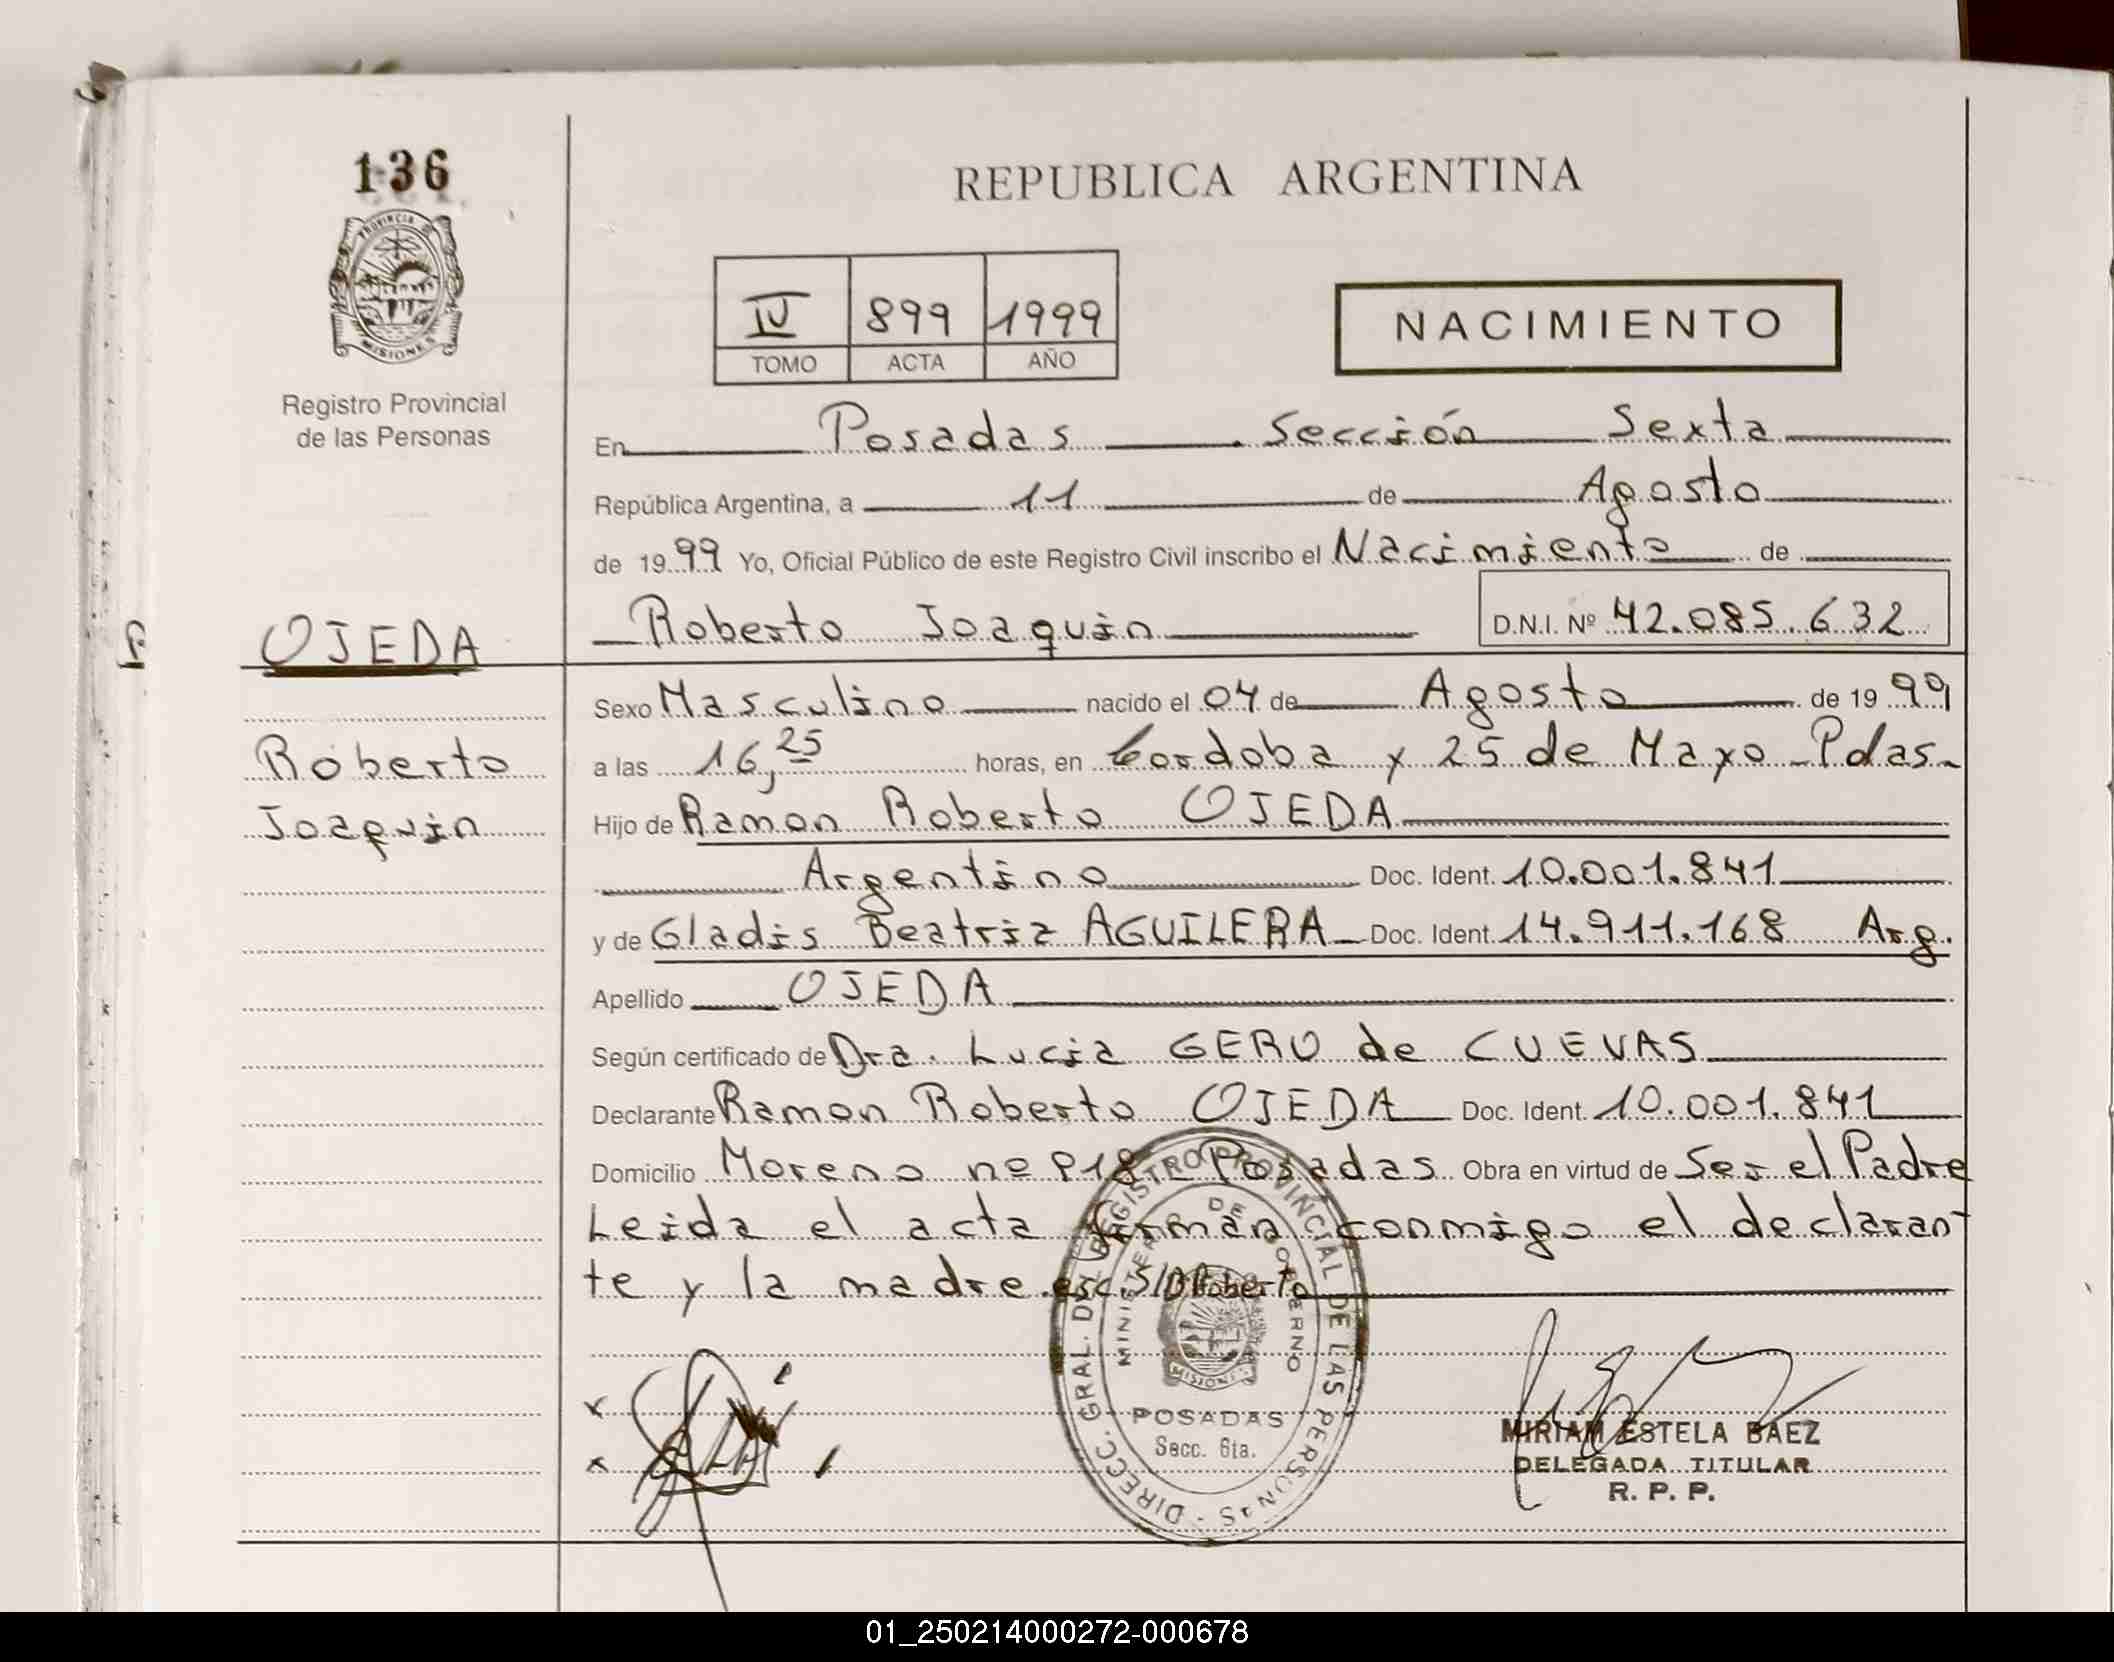 136
PROVINCIA DE
MISIONES
Registro Provincial
de las Personas
REPUBLICA ARGENTINA
IV 899 1999
TOMO ACTA AÑO
NACIMIENTO
En Posadas Sección Sexta
República Argentina, a 11 de Agosto
de 1999 Yo, Oficial Público de este Registro Civil inscribo el Nacimiento de
Roberto Joaquin D.N.I. Nº 42.085.632
OJEDA
Roberto
Joaquin
Sexo Masculino nacido el 04 de Agosto de 1999
a las 16,25 horas, en Cordoba y 25 de Mayo - Pdas.
Hijo de Ramon Roberto OJEDA
Argentino Doc. Ident. 10.001.841
y de Gladis Beatriz AGUILERA Doc. Ident. 14.911.168 Arg.
Apellido OJEDA
Según certificado de Dra. Lucia GERO de CUEVAS
Declarante Ramon Roberto OJEDA Doc. Ident. 10.001.841
Domicilio Moreno nº 918 Posadas Obra en virtud de Ser el Padre
Leida el acta firman conmigo el declaran-
te y la madre esc. S/B Roberto
DIRECC. GRAL. DEL REGISTRO PROVINCIAL DE LAS PERSONAS
MINISTERIO DE GOBIERNO
MISIONES
POSADAS
Secc. 6ta.
MIRIAM ESTELA BAEZ
DELEGADA TITULAR
R. P. P.
01_250214000272-000678